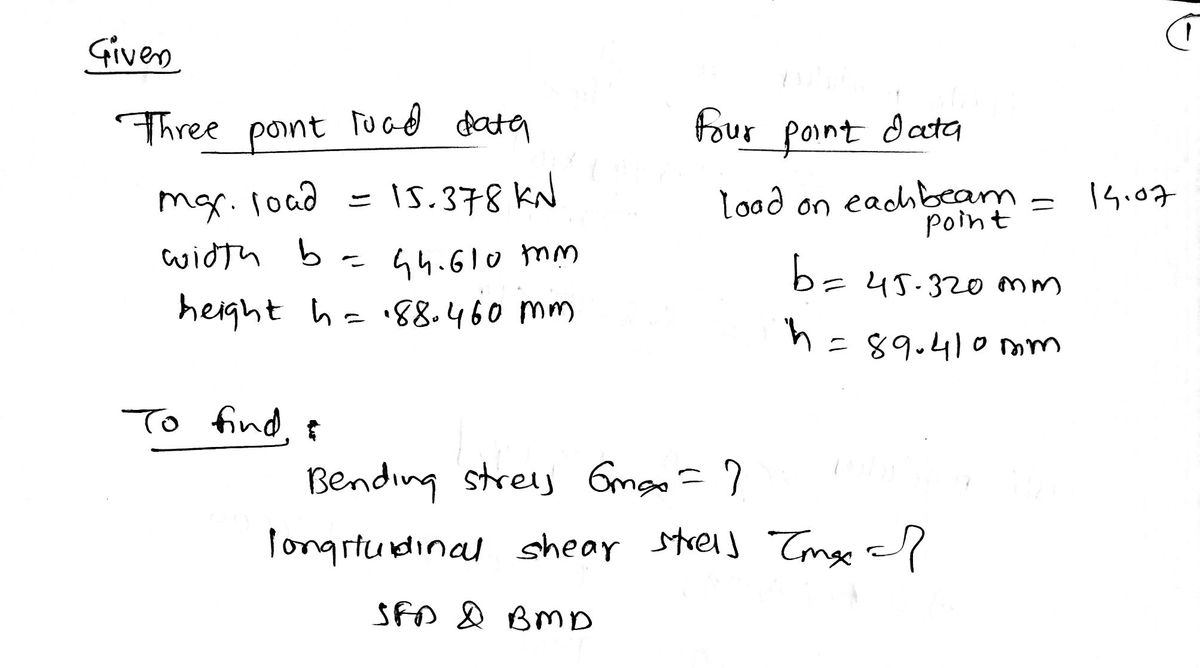 1
Given
Three point load data
max. load = 15.378 KN
width b = 44.610 mm
height h = 88.460 mm
Four point data
load on each beam point = 14.07
b = 45.320 mm
h = 89.410 mm
To find :
Bending stress σmax = ?
longitudinal shear stress τmax = ?
SFD & BMD